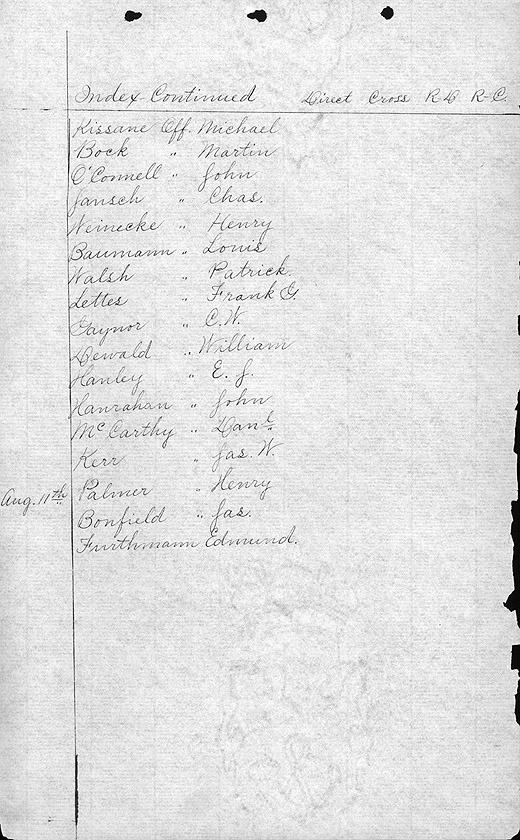 Index Continued Direct Cross R D R-C.
Kissane Off. Michael
Bock " Martin
O'Connell " John
Jansch " Chas.
Weinecke " Henry
Baumann " Louis
Walsh " Patrick.
Lettes " Frank G.
Gaynor " C. W.
Dewald " William
Hanley " E. J.
Hanrahan " John
McCarthy " Danl.
Kerr " Jas. W.
Aug. 11th Palmer " Henry
Bonfield " Jas.
Furthmann Edmund.